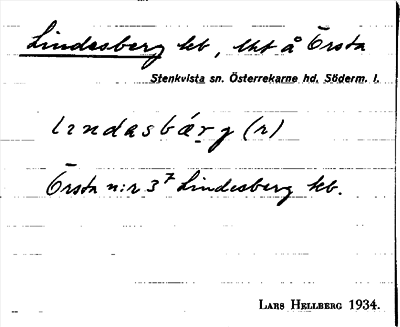 Lindesberg lht, lht å Örsta
Stenkvista sn. Österrekarne hd. Söderm. l.
lındasbárg (r)
Örsta n:r 3⁷ Lindesberg lht.
LARS HELLBERG 1934.